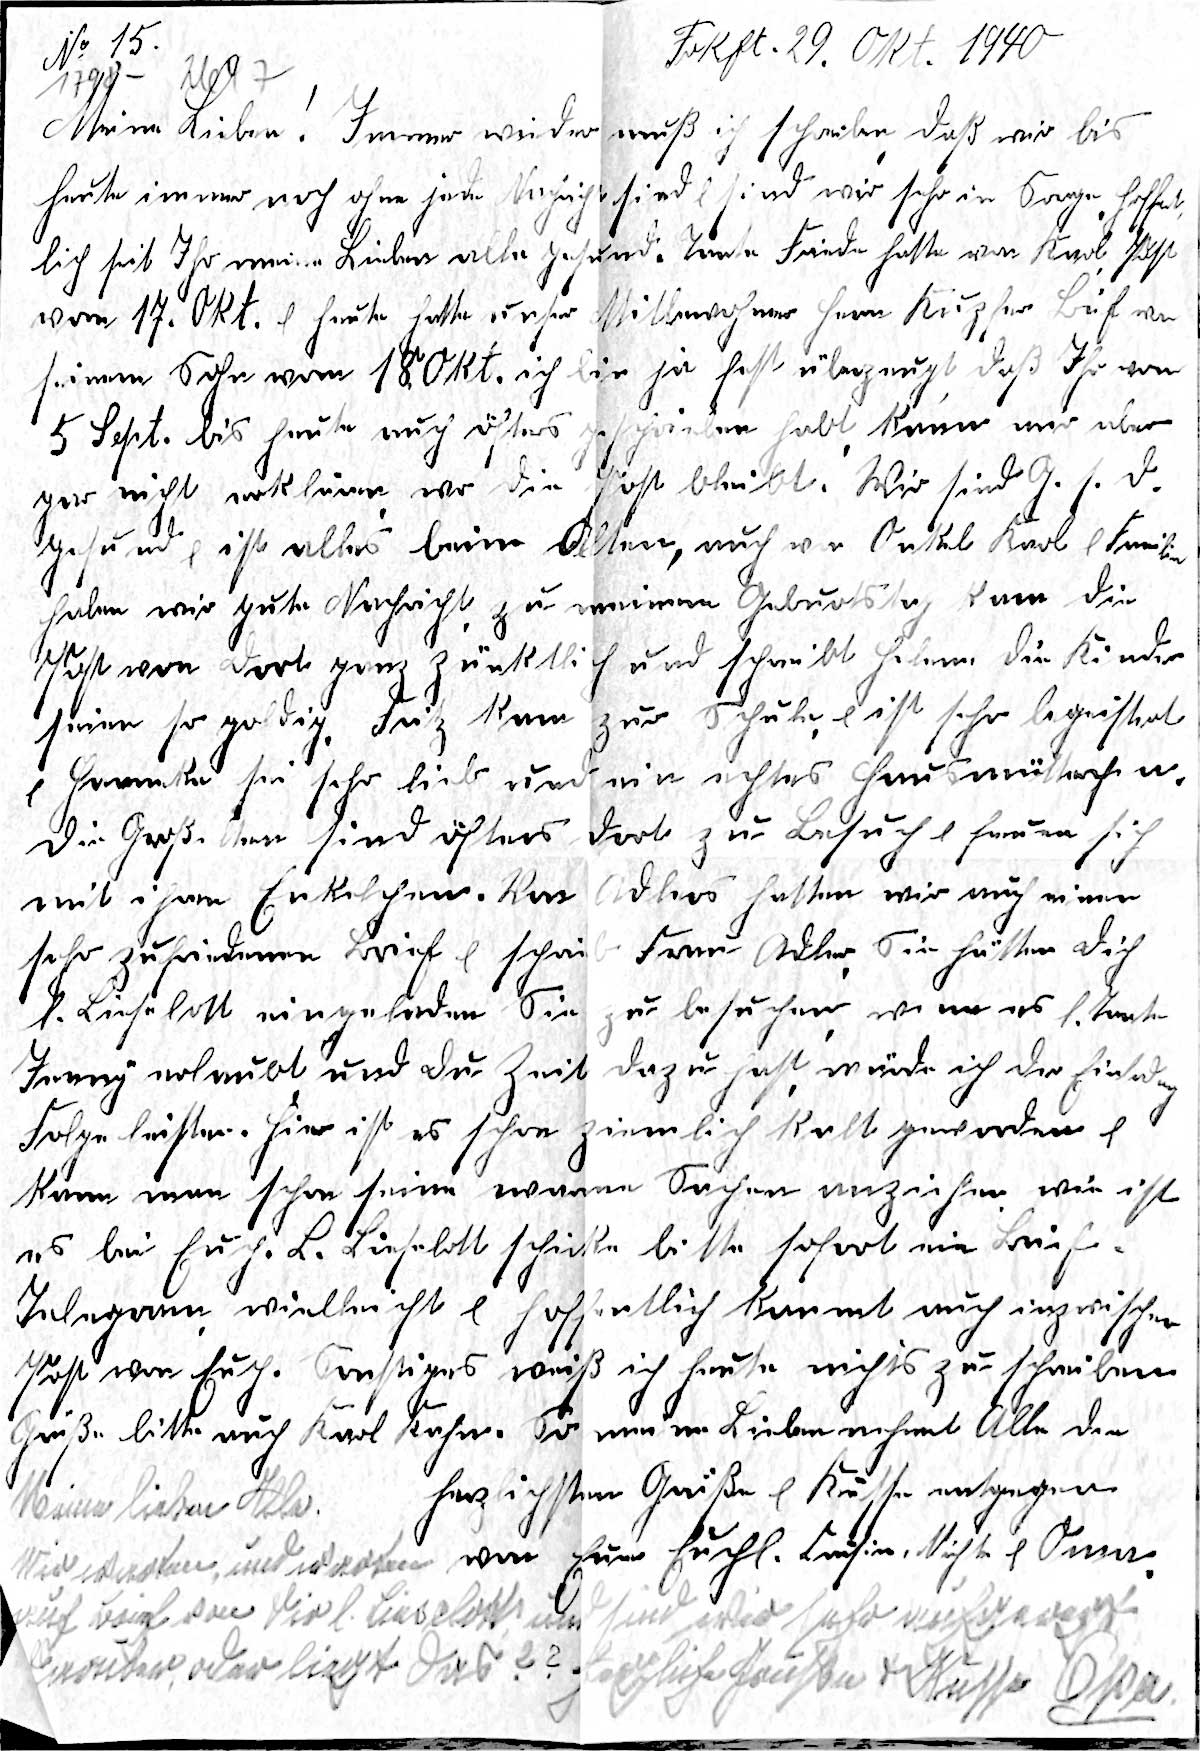 No 15.
Frkft. 29. Okt. 1940
Meine Lieben! Immer wieder muß ich schreiben, daß wir bis
heute immer noch ohne jede Nachricht sind & sind wir sehr in Sorge, hoffent,
lich seit Ihr meine Lieben alle gesund. Tante Frieda hatte von Karl, Post
vom 17. Okt. & heute hatte unser Mitbewohner Herr Brief von
seinem Sohn vom 18. Okt. ich bin ja fest überzeugt daß Ihr vom
5 Sept. bis heute auch öfters geschrieben habt, kann mir aber
gar nicht erklären, wo die Post bleibt. Wir sind G. s. d.
gesund & ist alles beim Alten, auch von Onkel Karl & Familie
haben wir gute Nachricht, zu meinem Geburtstag kam die
Post von dort ganz pünktlich und schreibt Helene die Kinder
seien so goldig, Fritz kam zur Schule, & ist sehr begeistert
& sei sehr lieb und ein echtes Hausmütterchen.
Die Großeltern sind öfters dort zu Besuch & freuen sich
mit ihren Enkelchen. Von Adlers hatten wir auch einen
sehr zufriedenen Brief & schrieb Frau Adler, Sie hätten Dich
l. Lieselott eingeladen Sie zu besuchen, wenn es l. Tante
Jenny erlaubt und Du Zeit dazu hast, würde ich der Einladung
Folge leisten. Hier ist es schon ziemlich kalt geworden &
kann man schon seine warme Sachen anziehen, wie ist
es bei Euch. L. Lieselott schicke bitte sofort ein Brief-
Telegramm, vielleicht & hoffentlich kommt auch inzwischen
Post von Euch. Sonstiges weiß ich heute nichts zu schreiben
Grüße bitte auch Karl Kahn. So meine Lieben nehmt Alle die
herzlichsten Grüße & Küsse entgegen
von Eurer Euchl. Cousine, Nichte & Oma.
Meine lieben Alle.
Wir warten, und warten
auf Brief von Dir l. Lieselott, und sind wir sehr aufgeregt
darüber, oder liegt das ?? Herzliche Grüße & Küsse Opa.